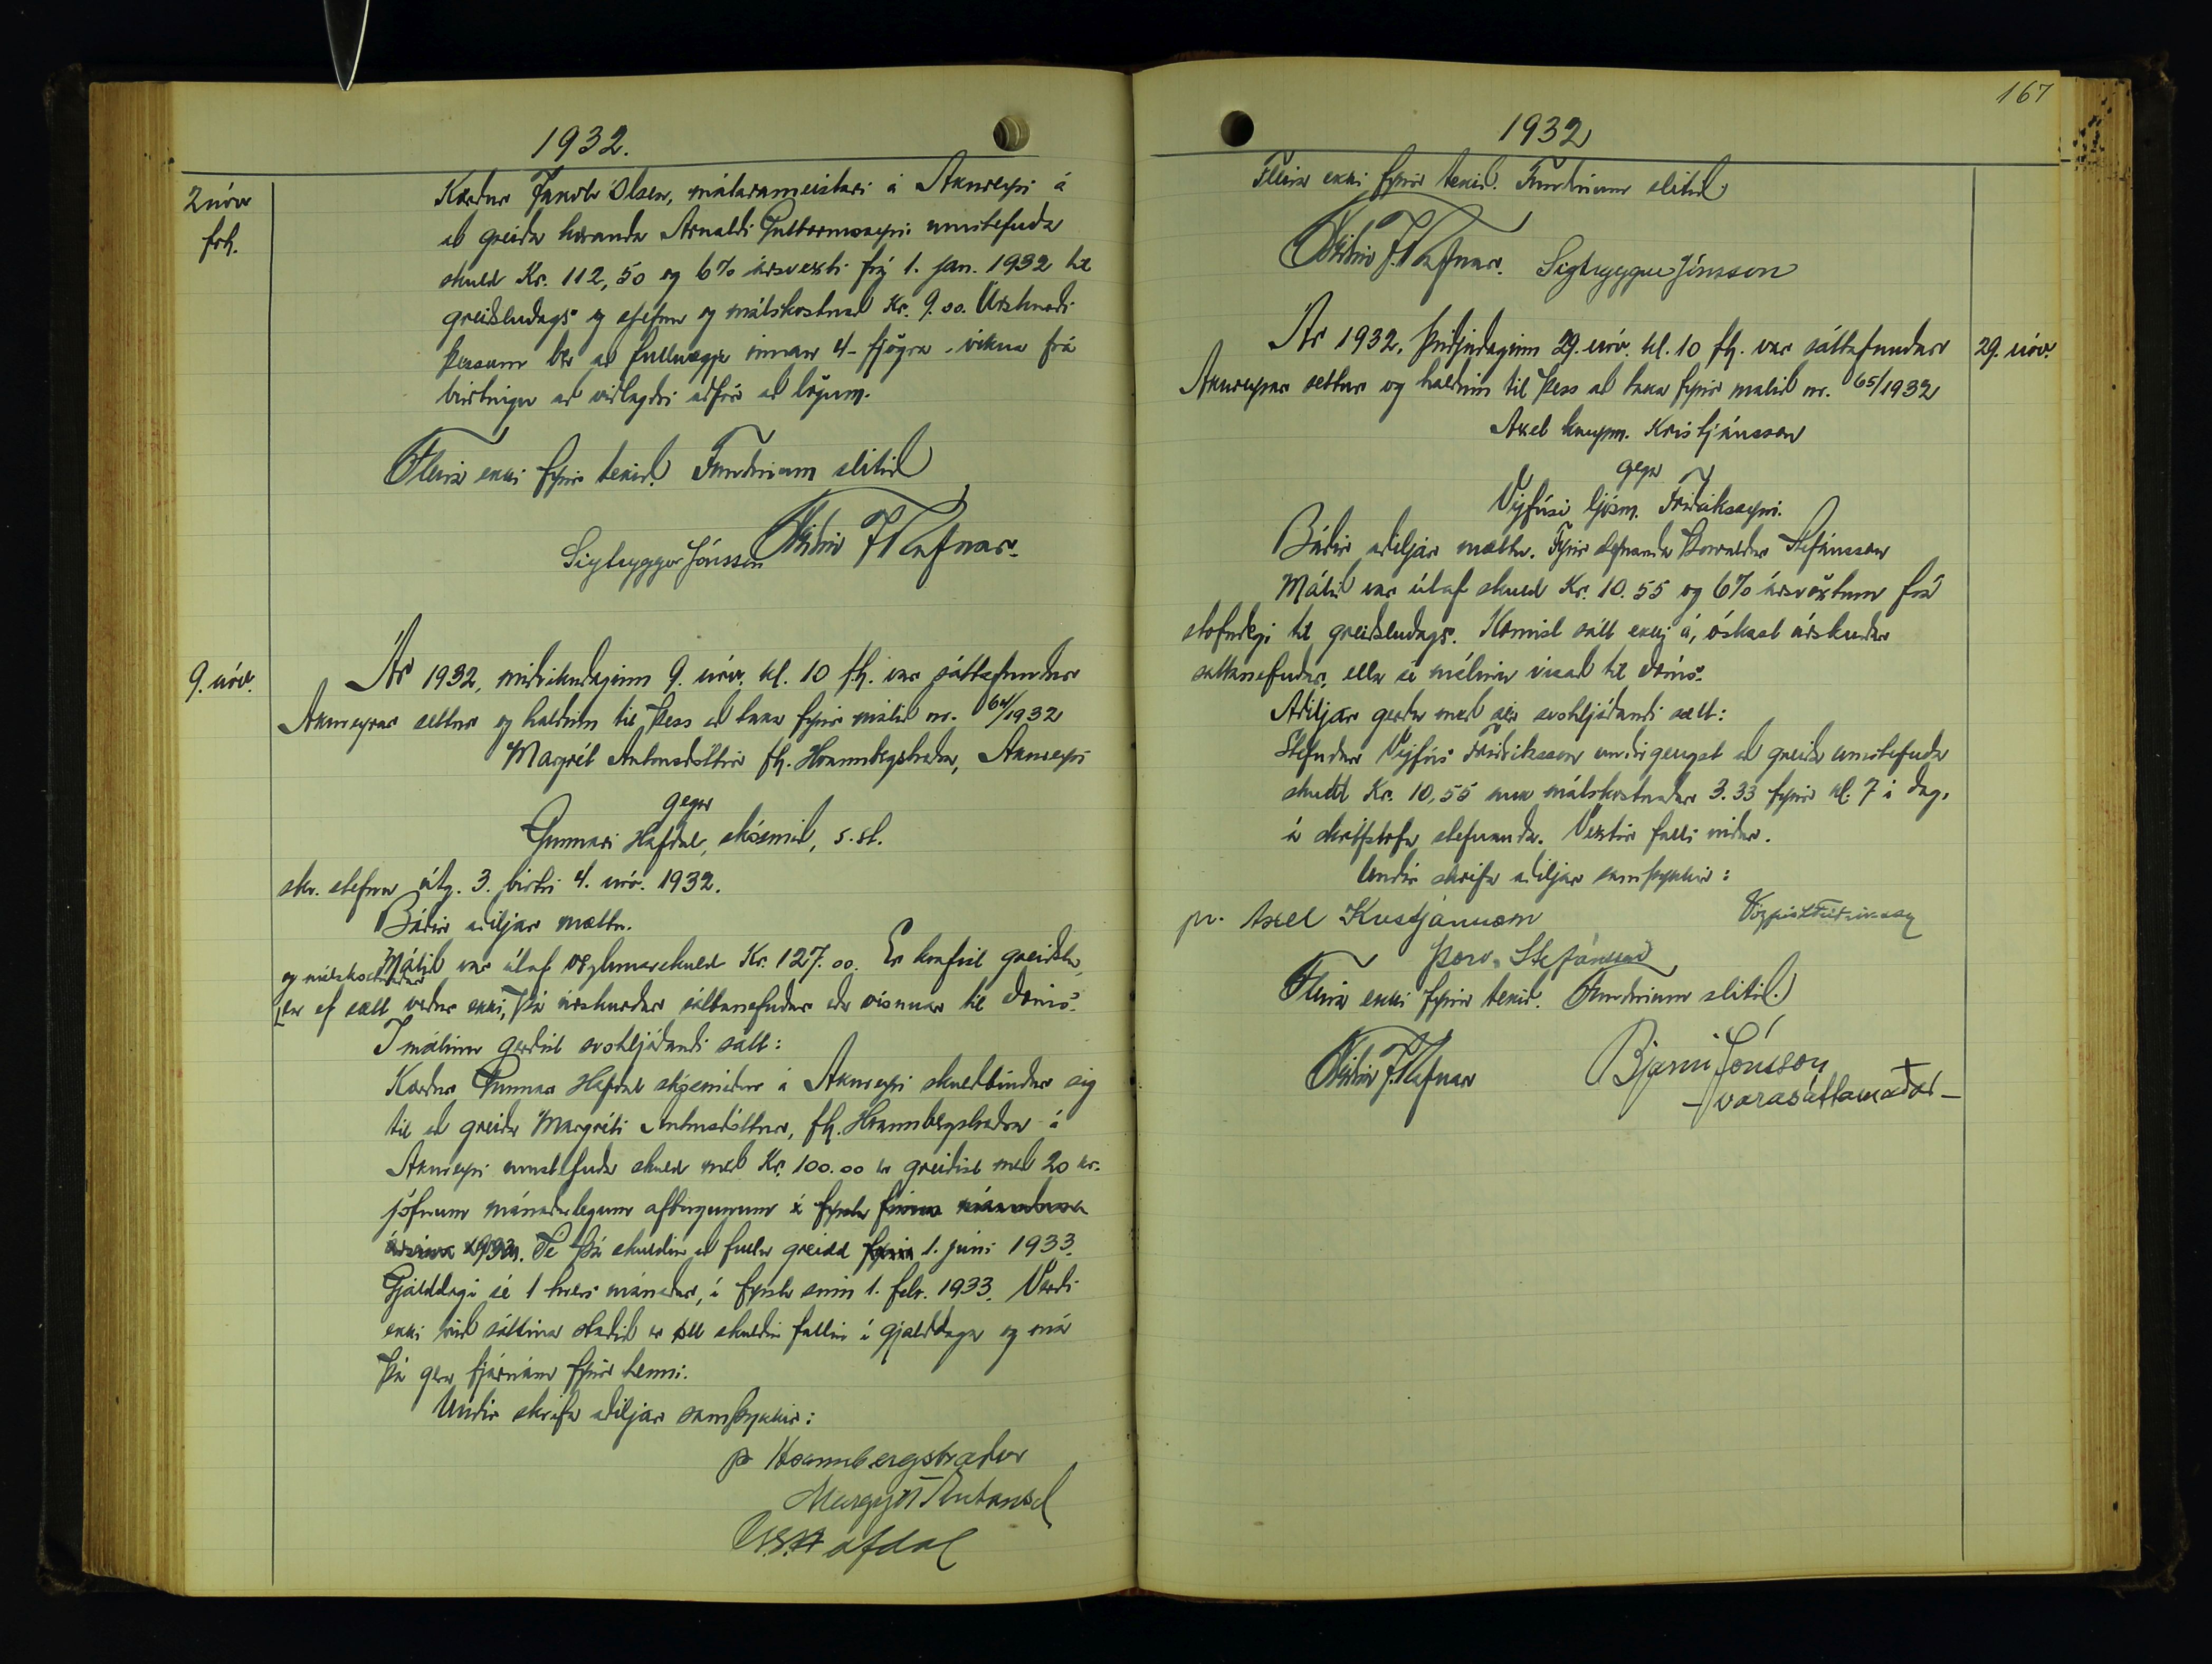 1932.
2 nóv.
frh.
Kærður Jakob Olsen, málarameistari á Akureyri á
að greiða kæranda Arnaldi Guttormssyni umstefnda
skuld Kr. 112,50 og 6% ársvexti frá 1. jan. 1932 til
greiðsludags og málskostnað Kr. 9.00. Úrskurði
þessum ber að fullnægja innan 4 - fjögra - vikna frá
birtingu að viðlagðri aðför að lögum.
Fleira ekki fyrir tekið. Fundinum slitið
Sigtryggur Jónsson
9. nóv.
Ár 1932, miðvikudaginn 9. nóv. kl. 10 fh. var sáttafundur
Akureyrar settur og haldinn til þess að taka fyrir málið nr. 64/1932
Margrét Antonsdóttir fh. Hrannbergsbræðra, Akureyri
gegn
Gunnari Hafdal, skósmið, s.st.
skv. stefnu útg. 3. birtri 4. nóv. 1932.
Báðir aðiljar mættu.
Málið var útaf skuld Kr. 127.00. Er krafist greiðslu
og málskostnaðar
en ef sætt verður ekki, þá úrskurðar sáttanefndar eða vísunar til dóms.
Í málinu gerðist svohljóðandi sátt:
Kærður Gunnar Hafdal skósmiður á Akureyri skuldbindur sig
til að greiða Margréti Antonsdóttur, fh. Hrannbergsbræðra á
Akureyri umstefnda skuld með Kr. 100.00 er greiðist með 20 kr.
jöfnum mánaðarlegum afborgunum á fyrstu fimm mánuðum
ársins 1933. Sé þá skuldin að fullu greidd fyrir 1. júní 1933.
Gjalddagi sé 1 hvers mánaðar, í fyrsta sinn 1. febr. 1933. Verði
ekki við sáttina staðið er öll skuldin fallin í gjalddaga og má
þá gera fjárnám fyrir henni.
Undir skrifa aðiljar samþykkir:
pr Hrannbergsbræður
Margrét Antonsd
G.S. Hafdal
167
1932
Fleira ekki fyrir tekið. Fundinum slitið
Sigtryggur Jónsson
29. nóv.
Ár 1932, þriðjudaginn 29. nóv. kl. 10 fh. var sáttafundur
Akureyrar settur og haldinn til þess að taka fyrir málið nr. 65/1932
Axel kaupm. Kristjánsson
gegn
Vigfúsi ljósm. Friðrikssyni.
Báðir aðiljar mættu. Fyrir stefnanda Þorvaldur Stefánsson
Málið var útaf skuld Kr. 10.55 og 6% ársvöxtum frá
stofndegi til greiðsludags. Komist sátt ekki á, óskast úrskurðar
sáttanefndar, ella sé málinu vísað til dóms.
Aðiljar gerðu með sér svohljóðandi sætt:
Stefndur Vigfús Friðriksson undirgengst að greiða umstefnda
skuld Kr. 10,55 auk málskostnaðar 3.33 fyrir kl. 7 í dag,
á skrifstofu stefnanda. Vextir falli niður.
Undir skrifa aðiljar samþykkir:
pr. Axel Kristjánsson
Vigfús L Friðriksson
Þorv. Stefánsson
Fleira ekki fyrir tekið. Fundinum slitið.
Bjarni Jónsson
- varasáttamaður -